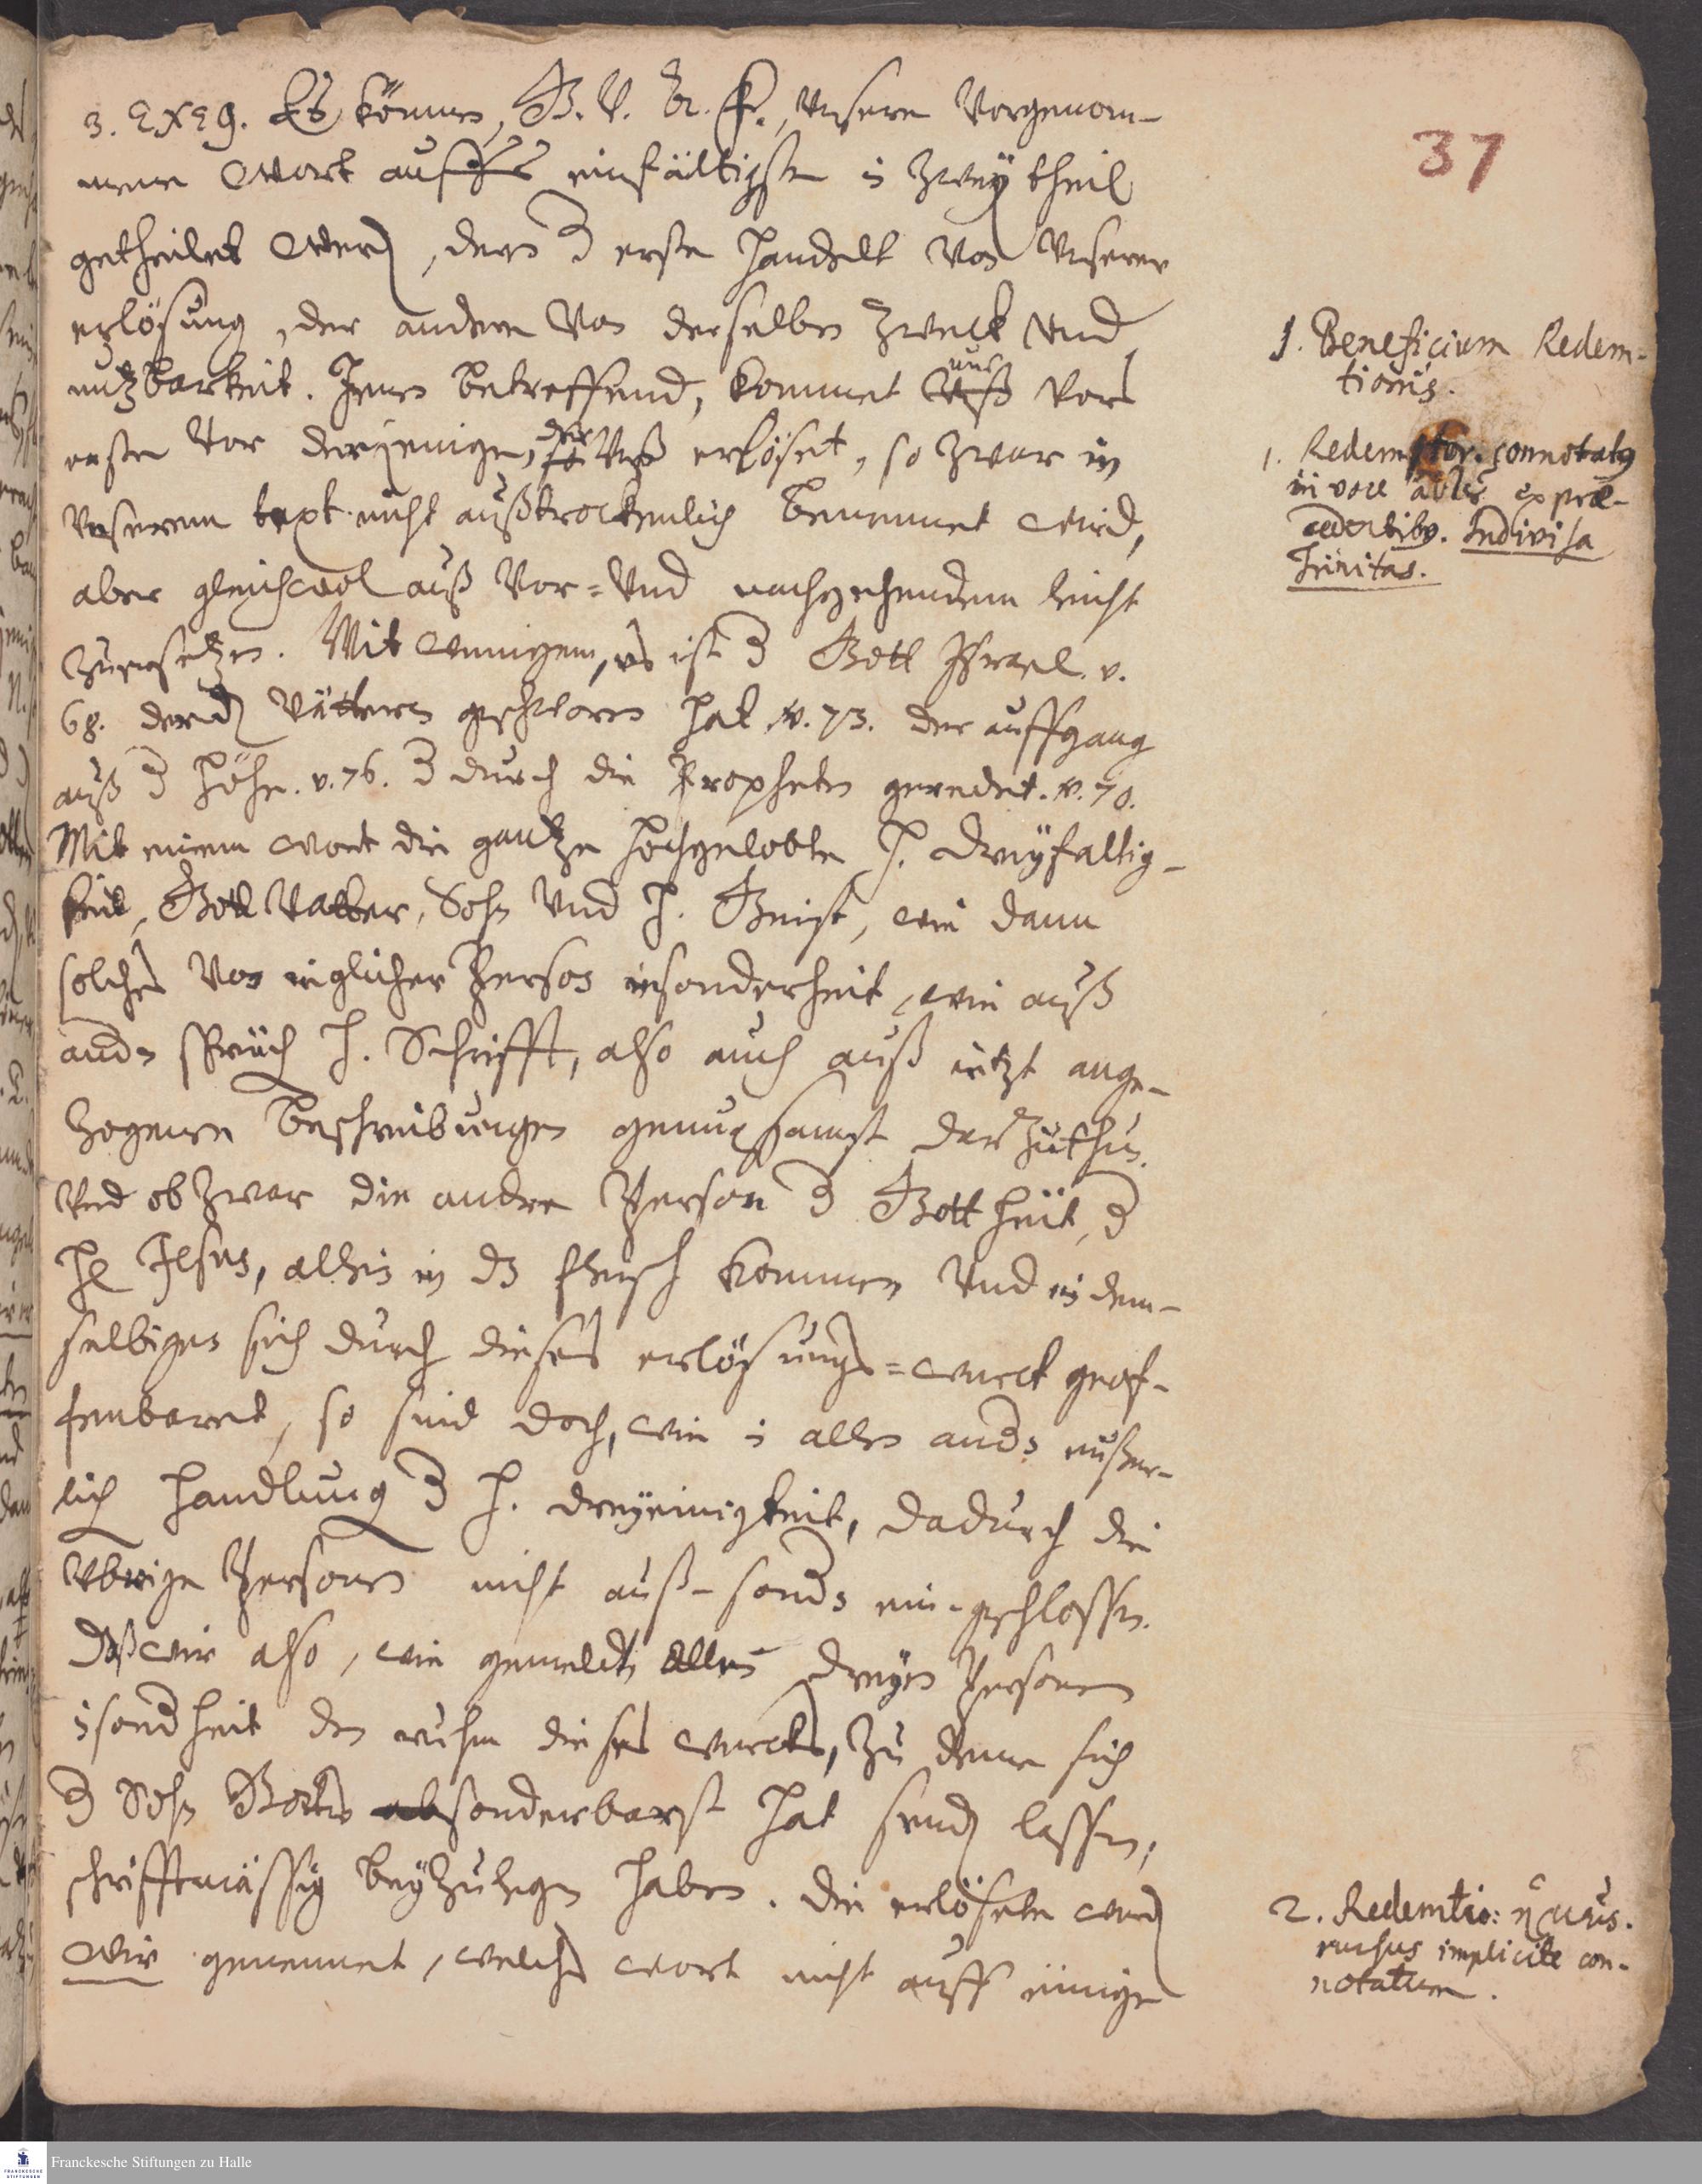 37
3. Exeg. Es können, G. V. A. Fr., unsere Vorgenom-
mene Wort auffs einfältigste in zwey theil
getheilet werd, deren d erste handelt von unserer
erlösung, der andere von derselben zweck und
nutzbarkeit. Jenes betreffend, kommet uns vors
erste vor derjenige, der unß erlöset, so zwar in
unserem text nicht außtrockenlich benennet wird,
aber gleichwol auß vor- und nachgehendem leicht
zuersehen. Mit wenigem, es ist d Gott Israel. v.
68. der d Vättern geschworen hat v. 73. der auffgang
auß d höhe. v. 76. d durch die Propheten geredet. v. 70.
Mit einem wort die gantze hochgelobte H. dreyfaltig-
keit, Gott Vatter, Sohn und H. Geist, wie dann
solches von ieglicher Person insonderheit, wie auß
andn sprüch H. Schrifft, also auch auß ietzt ange-
zogenen beschreibungen genugsamst darzuthun.
Und ob zwar die andre Person d Gottheit, d
H Jesus, allein in dz fleisch kommen und in dem-
selbigen sich durch dieses erlösungs-werck geof-
fenbaret, so sind doch, wie in allen andn eußer-
lich handlung d H. dreyeinigkeit, dadurch die
übrige Personen nicht auß- sondn ein-geschlossen.
Daß wir also, wie gemeldt allen dreyen Personen
insondheit den ruhm dieses wercks, zu deme sich
d Sohn Gottes absonderbarst hat send lassen,
schrifftmässig beyzulegen haben. Die erlösete werd
wir genennet, welches wort nicht auff einige
1. Beneficium Redem-
tionis.
1. Redemptor. connotatus
in voce expræ-
cedentibus. Indivisa
Trinitas.
2. Redemtio: ἡμεῖς.
rursus implicite con-
notatum.
Franckesche Stiftungen zu Halle